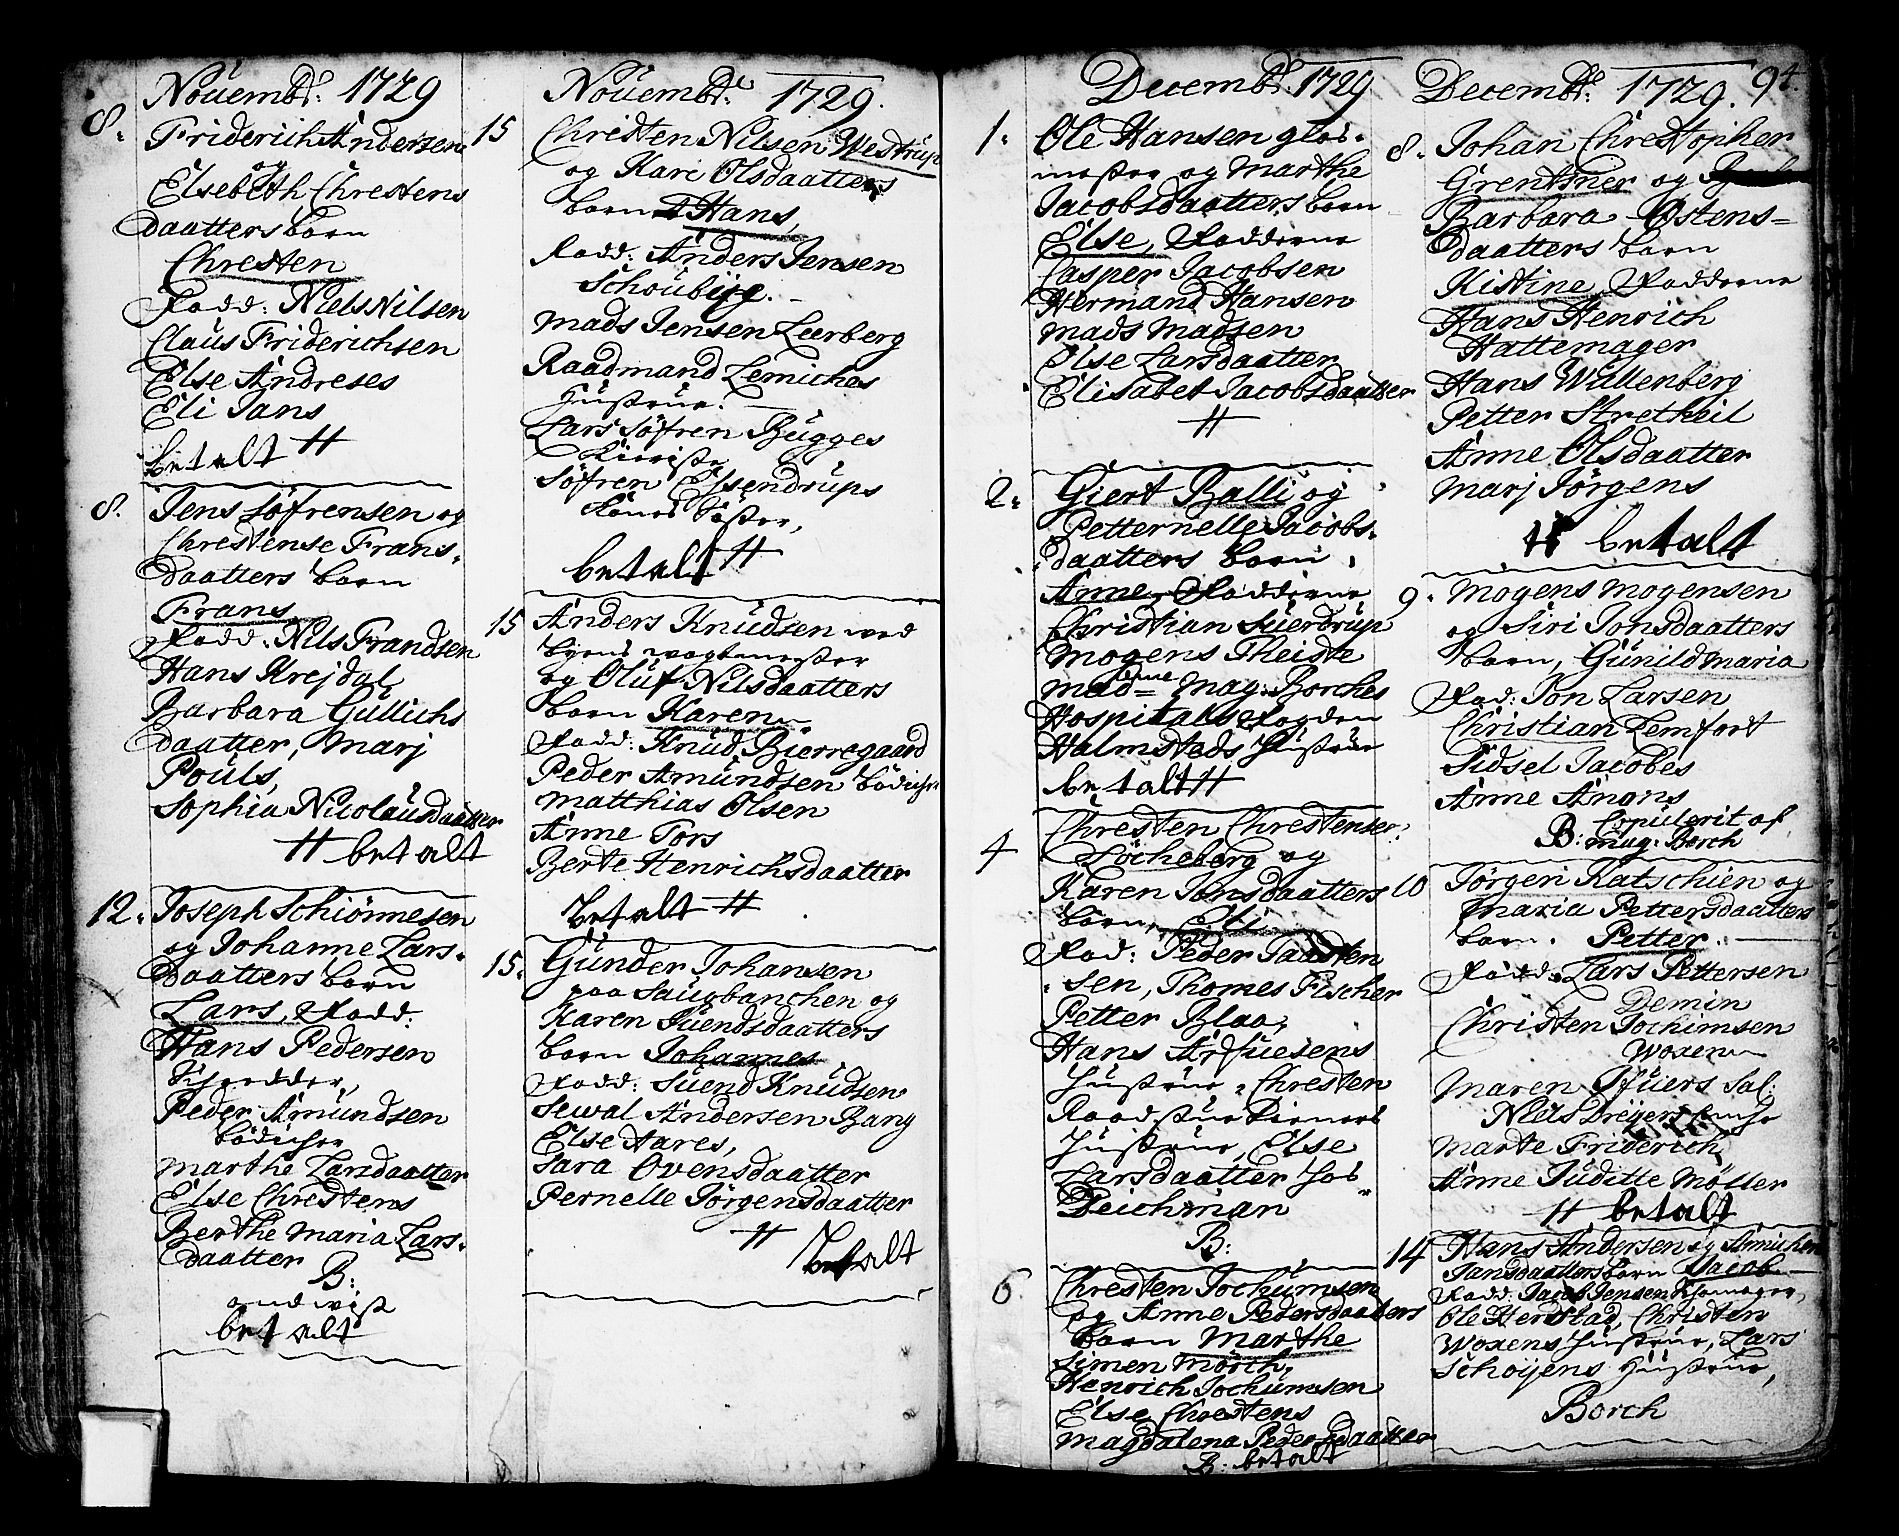 Nouembr: 1729
8. Friderich Andersen
og
Elsebeth Chrestens
daatters barn
Chresten
Fadd: Niels Nilsen
Claus Friderichsen
Else Andreses
Eli Jans
betalt #
8. Jens Söfrensen og
Chrestense Frans-
daatters barn
Frans
Fadd: Nils Frandsen
Hans Krejdal
Barbara Gullichs
daatter, Marj
Pouls,
Sophia Nicolausdaatter
# betalt
12. Joseph Schiönnesen
og Johanne Lars-
daatters barn
Lars, Fadd:
Hans Pedersen
Peder Amundsen
bödicher
Marthe Larsdaatter
Else Chrestens
Berthe Maria Lars-
daatter
B:
betalt
Nouembr: 1729.
15 Christen Nilsen Westrup
og Kari Olsdaatters
barn Hans,
Fadd: Anders Jensen
Schoubÿe.
Mads Jensen Leerberg
Raadmand Lemiches
Hustrue.
Lars Söfren Bugges
Söfren Essendrups
Kones Söster,
betalt #
15 Anders Knudsen ved
byens wagtmester
og Oluf Nilsdaatters
barn Karen
Fadd: Knud Bierregaard
Peder Amundsen bödicher
Matthias Olsen
Anne Tors
Berte Henrichsdaatter
betalt #
15. Gunder Johansen
paa Saugbanchen og
Karen Suendsdaatters
barn Johannes
Fadd: Suend Knudsen
Sewal Andersen Bang
Else Aares,
Sara Ovensdaatter
Pernelle Jörgensdaatter
#
betalt
Decembr. 1729
1. Ole Hansen glas-
mester og Marthe
Jacobsdaatters barn
Else, Fadderne
Casper Jacobsen
Hermand Hansen
Mads Madsen
Else Larsdaatter
Elisabet Jacobsdaatter
#
2. Giert Balli og
Petternelle Jacobs-
daatters barn
Anne, Fadderne
Christian Suerdrup
Mogens Theiste
Madme Mag: Borches
Hospitals Fogden
Halmsteds Hustrue
betalt #
4 Chresten Chrestenser
Löcheberg og
Karen Jonsdaatters
barn, Eli
Fad: Peder Taasten
sen, Thomes Fischer
Petter Blaa,
Hans Arfuesens
Hustrue, Chresten
Raadstue tieners
Hustrue, Else
Larsdaatter hos
Deichman
B:
6 Chresten Jochumsen
og Anne Pedersdaatters
barn Marthe
Simen Mörch,
Henrich Jochumsen
Else Chrestens
Magdalena Pedersdaatter
B: betalt
Decembr: 1729. 94.
8. Johan Chrestopher
Grentsner og
Barbara Ostens-
daatters barn
Kistine, Fadderne
Hans Henrich
Hattemager
Hans Wallenberg
Petter Stretkeil
Anne Olsdaatter
Marj Jörgens
# betalt
9. Mogens Mogensen
og Siri Jonsdaatters
barn, Gunild Maria
Fad: Jon Larsen
Christian Lemfort
Sidsel Jacobes
Anne Anons
Copulerit af
B: Mag: Borch
10 Jörgen Katschien og
Maria Pettersdaatters
barn. Petter.
Fadd: Lars Pettersen
Demin
Christen Jochimsen
Woxen
Maren Ifuers Sal:
Niels Dreÿers enche
Marte Friderich
Anne Juditte Möller
# betalt
14 Hans Andersen og Annichen
Jansdaatters barn Jacob
Fadd: Jacob Jensen
Ole Herstad, Christen
Woxens Hustrue, Lars
Schoÿens Hustrue,
Borch